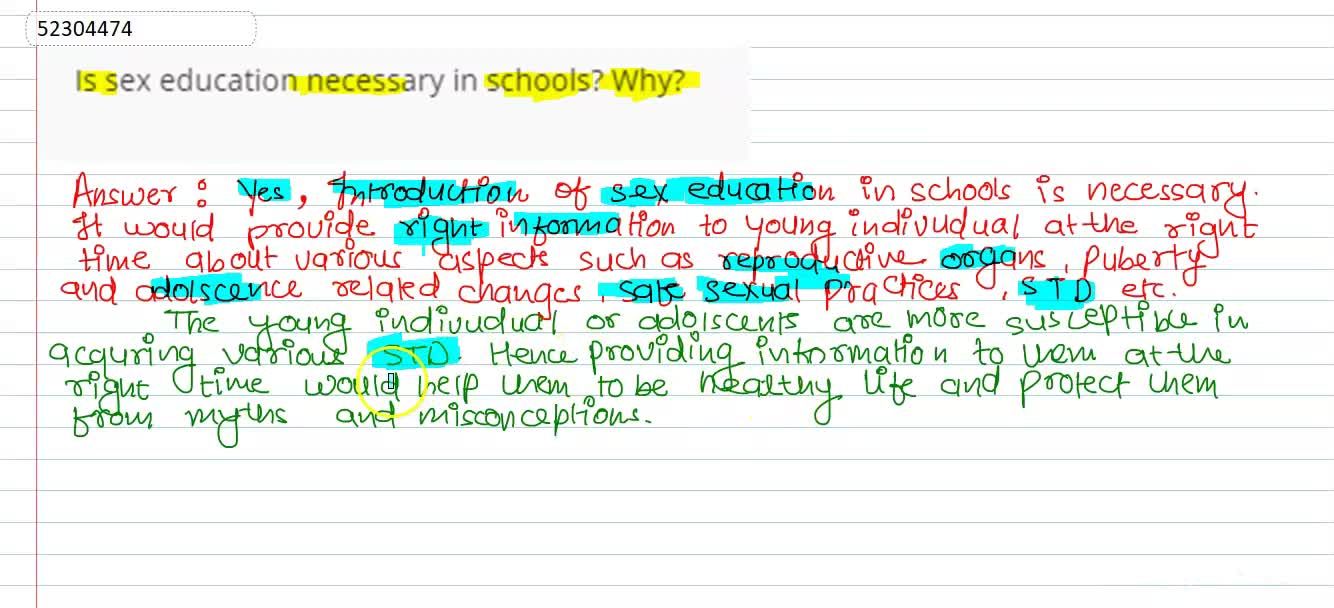 52304474
Is sex education necessary in schools? Why?
Answer : Yes, Introduction of sex education in schools is necessary.
It would provide right information to young indivudual at the right
time about various aspects such as reproductive organs, Puberty
and adolscence related changes, safe sexual practices, STD etc.
The young indivudual or adolscents are more susceptible in
acquring various STD. Hence providing information to them at the
right time would help them to be healthy life and protect them
from myths and misconceptions.